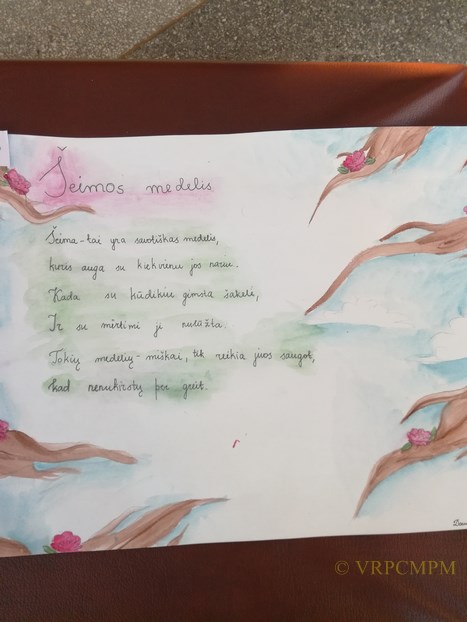 Šeimos medelis
Šeima-tai yra savotiškas medelis,
kuris auga su kiekvienu jos nariu.
Kada su kūdikiu gimsta šakelė,
Ir su mirtimi ji nulūžta.
Tokių medelių-miškai, tik reikia juos saugot,
kad nenukirstų per greit.
© VRPCMPM